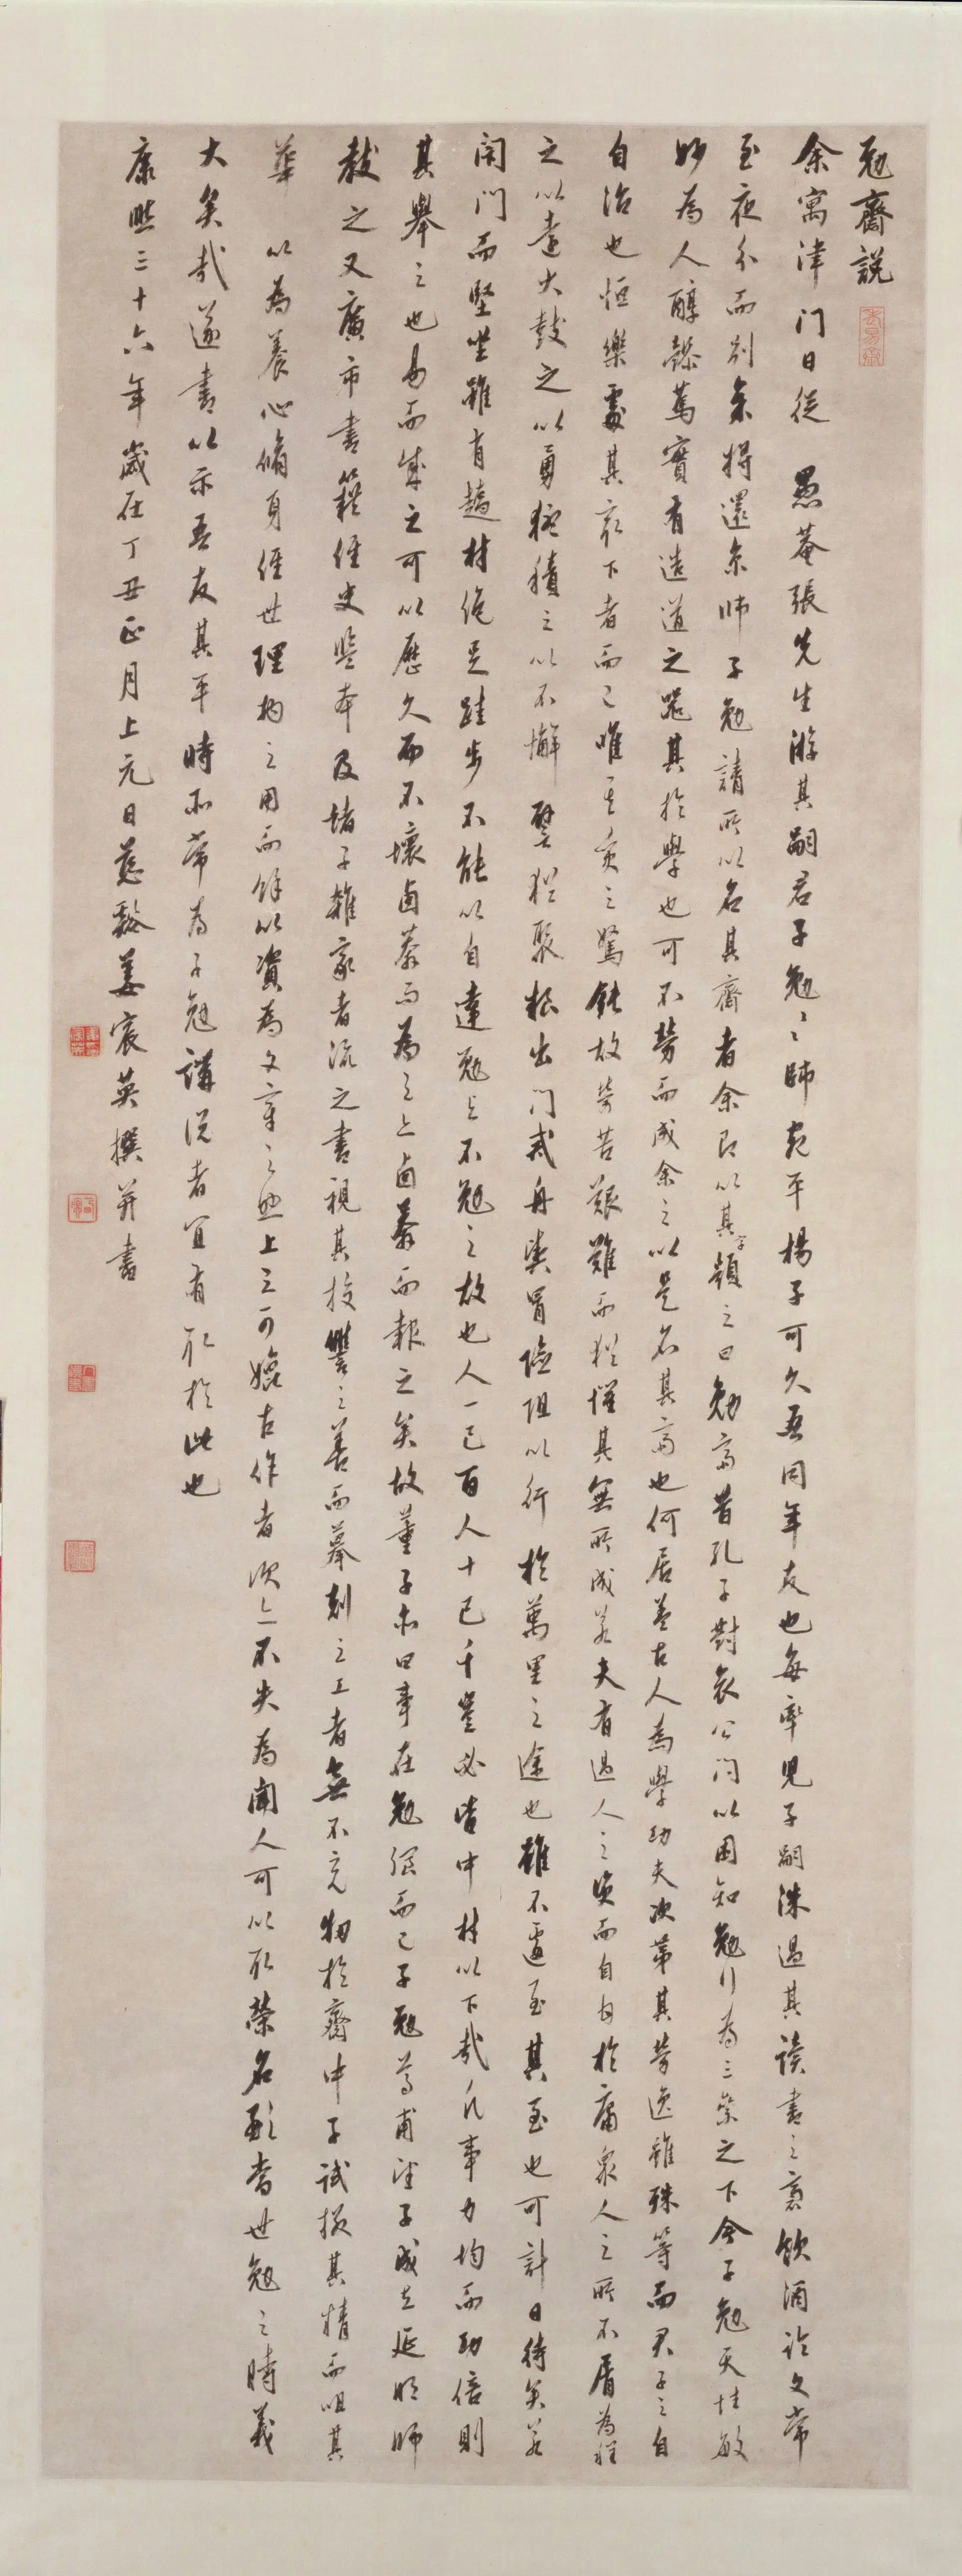 勉齋說
余寓津门日從 愚菴張先生游其嗣君子勉〻師宛平楊子可久吾同年友也每率見子嗣洙過其讀書之裏飲酒論文常
至夜分而別余將還京師 子勉請所以名其齋者余即以其字顏之曰勉齋昔孔子對哀公问以困知勉行為三等之下今子勉天性敏
妙為人醇謹篤實有造道之器其於學也可不勞而成余之以是名其齋也何居蓋古人為學功夫次第其勞逸雖殊等而君子之自
自治也恒樂處其最下者而已唯其質之駑鈍故勞苦艱難而猶懼其無所成若夫有過人之資而自同於庸衆人之所不屑為程
之以遠大鼓之以勇猛積之以不懈譬猶聚糧出门戒舟楫冒險阻以行於萬里之途也雖不遽至其至也可計日待矣若
闭门而堅坐雖有趫材絕足跬步不能以自達勉與不勉之故也人一己百人十己千豈必皆中材以下哉凡事力均而功倍則
其舉之也易而成之可以歷久而不壞鹵莽而為之亦鹵莽而報之矣故董子亦曰事在勉强而已子勉尊甫望子成立延明師
教之又廣市書籍經史監本及諸子雜家者流之書視其挍讐之善而摹刻之工者無不充牣於齋中子試掇其精而咀其
華 以為養心脩身經世理物之用而餘以資為文章之興上之可媲古作者次亦不失為闻人可以取榮名顯當世勉之時義
大矣哉遂書以示吾友其平時所常為子勉講说者宜有取於此也
康熙三十六年歲在丁丑正月上元日慈谿姜宸英撰并書